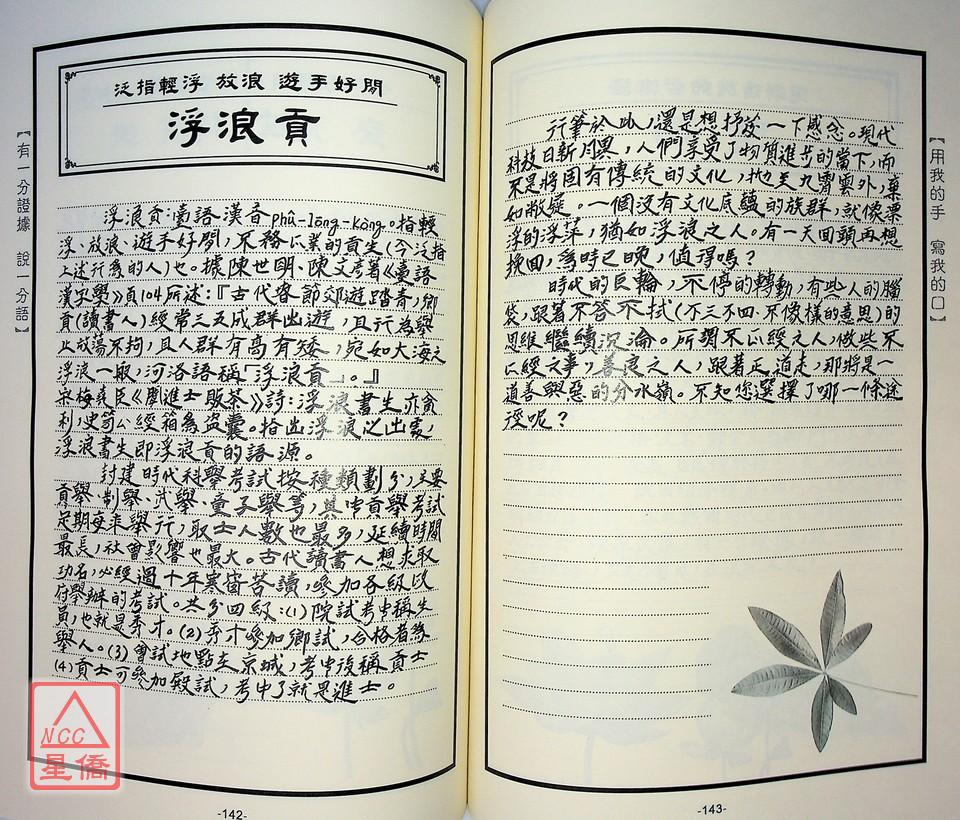 泛指輕浮 放浪 遊手好閒
浮浪貢
【有一分證據 說一分語】
浮浪貢:臺語漢音phû-lōng-kòng。指輕
浮、放浪、遊手好閒,不務正業的貢生(今泛指
上述行為的人)也。據陳世明、陳文彥著《臺語
漢字學》頁104所述:『古代春節郊遊踏青,鄉
貢(讀書人)經常三五成群出遊,且行為舉
止放蕩不拘,且人群有高有矮,宛如大海之
浮浪一般,河洛語稱「浮浪貢」。』
宋梅堯臣《聞進士販茶》詩:浮浪書生亦貪
利,史笥經箱為盜囊。指出浮浪之出處,
浮浪書生即浮浪貢的語源。
封建時代科舉考試按種類劃分,主要
貢舉、制舉、武舉、童子舉等,其中貢舉考試
定期每年舉行,取士人數也最多,延續時間
最長,社會影響也最大。古代讀書人想求取
功名,必經過十年寒窗苦讀,參加各級政
府舉辦的考試。共分四級:(1)院試考中稱生
員,也就是秀才。(2)秀才參加鄉試,合格者為
舉人。(3)會試地點在京城,考中後稱貢士
(4)貢士可參加殿試,考中了就是進士。
NCC
星僑
-142-
行筆於此,還是想抒發一下感念。現代
科技日新月異,人們享受了物質進步的當下,而
不是將固有傳統的文化,拋至九霄雲外,棄
如敝屣。一個沒有文化底蘊的族群,就像漂
浮的浮萍,猶如浮浪之人。有一天回頭再想
挽回,為時已晚,值得嗎?
時代的巨輪,不停的轉動,有些人的腦
筴,跟著不答不拭(不三不四、不像樣的意思)的
思維繼續沉淪。所謂不正經之人,做些不
正經之事,善良之人,跟著正道走,那將是一
道善與惡的分水嶺。不知您選擇了哪一條途
徑呢?
【用我的手 寫我的口】
-143-